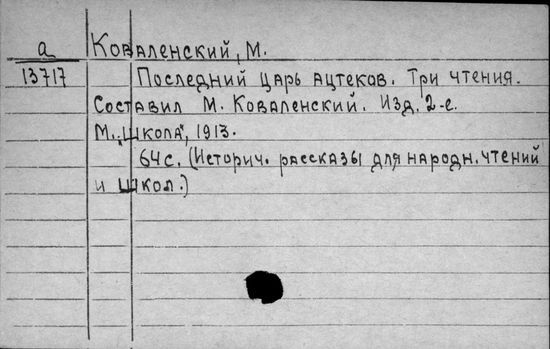 а Коваленский, М.
13717 Последний царь ацтеков. Три чтения.
Составил М. Коваленский. Изд. 2-е.
М., "Школа", 1913.
64 с. (Историч. рассказы для народн. чтений
и школ.)